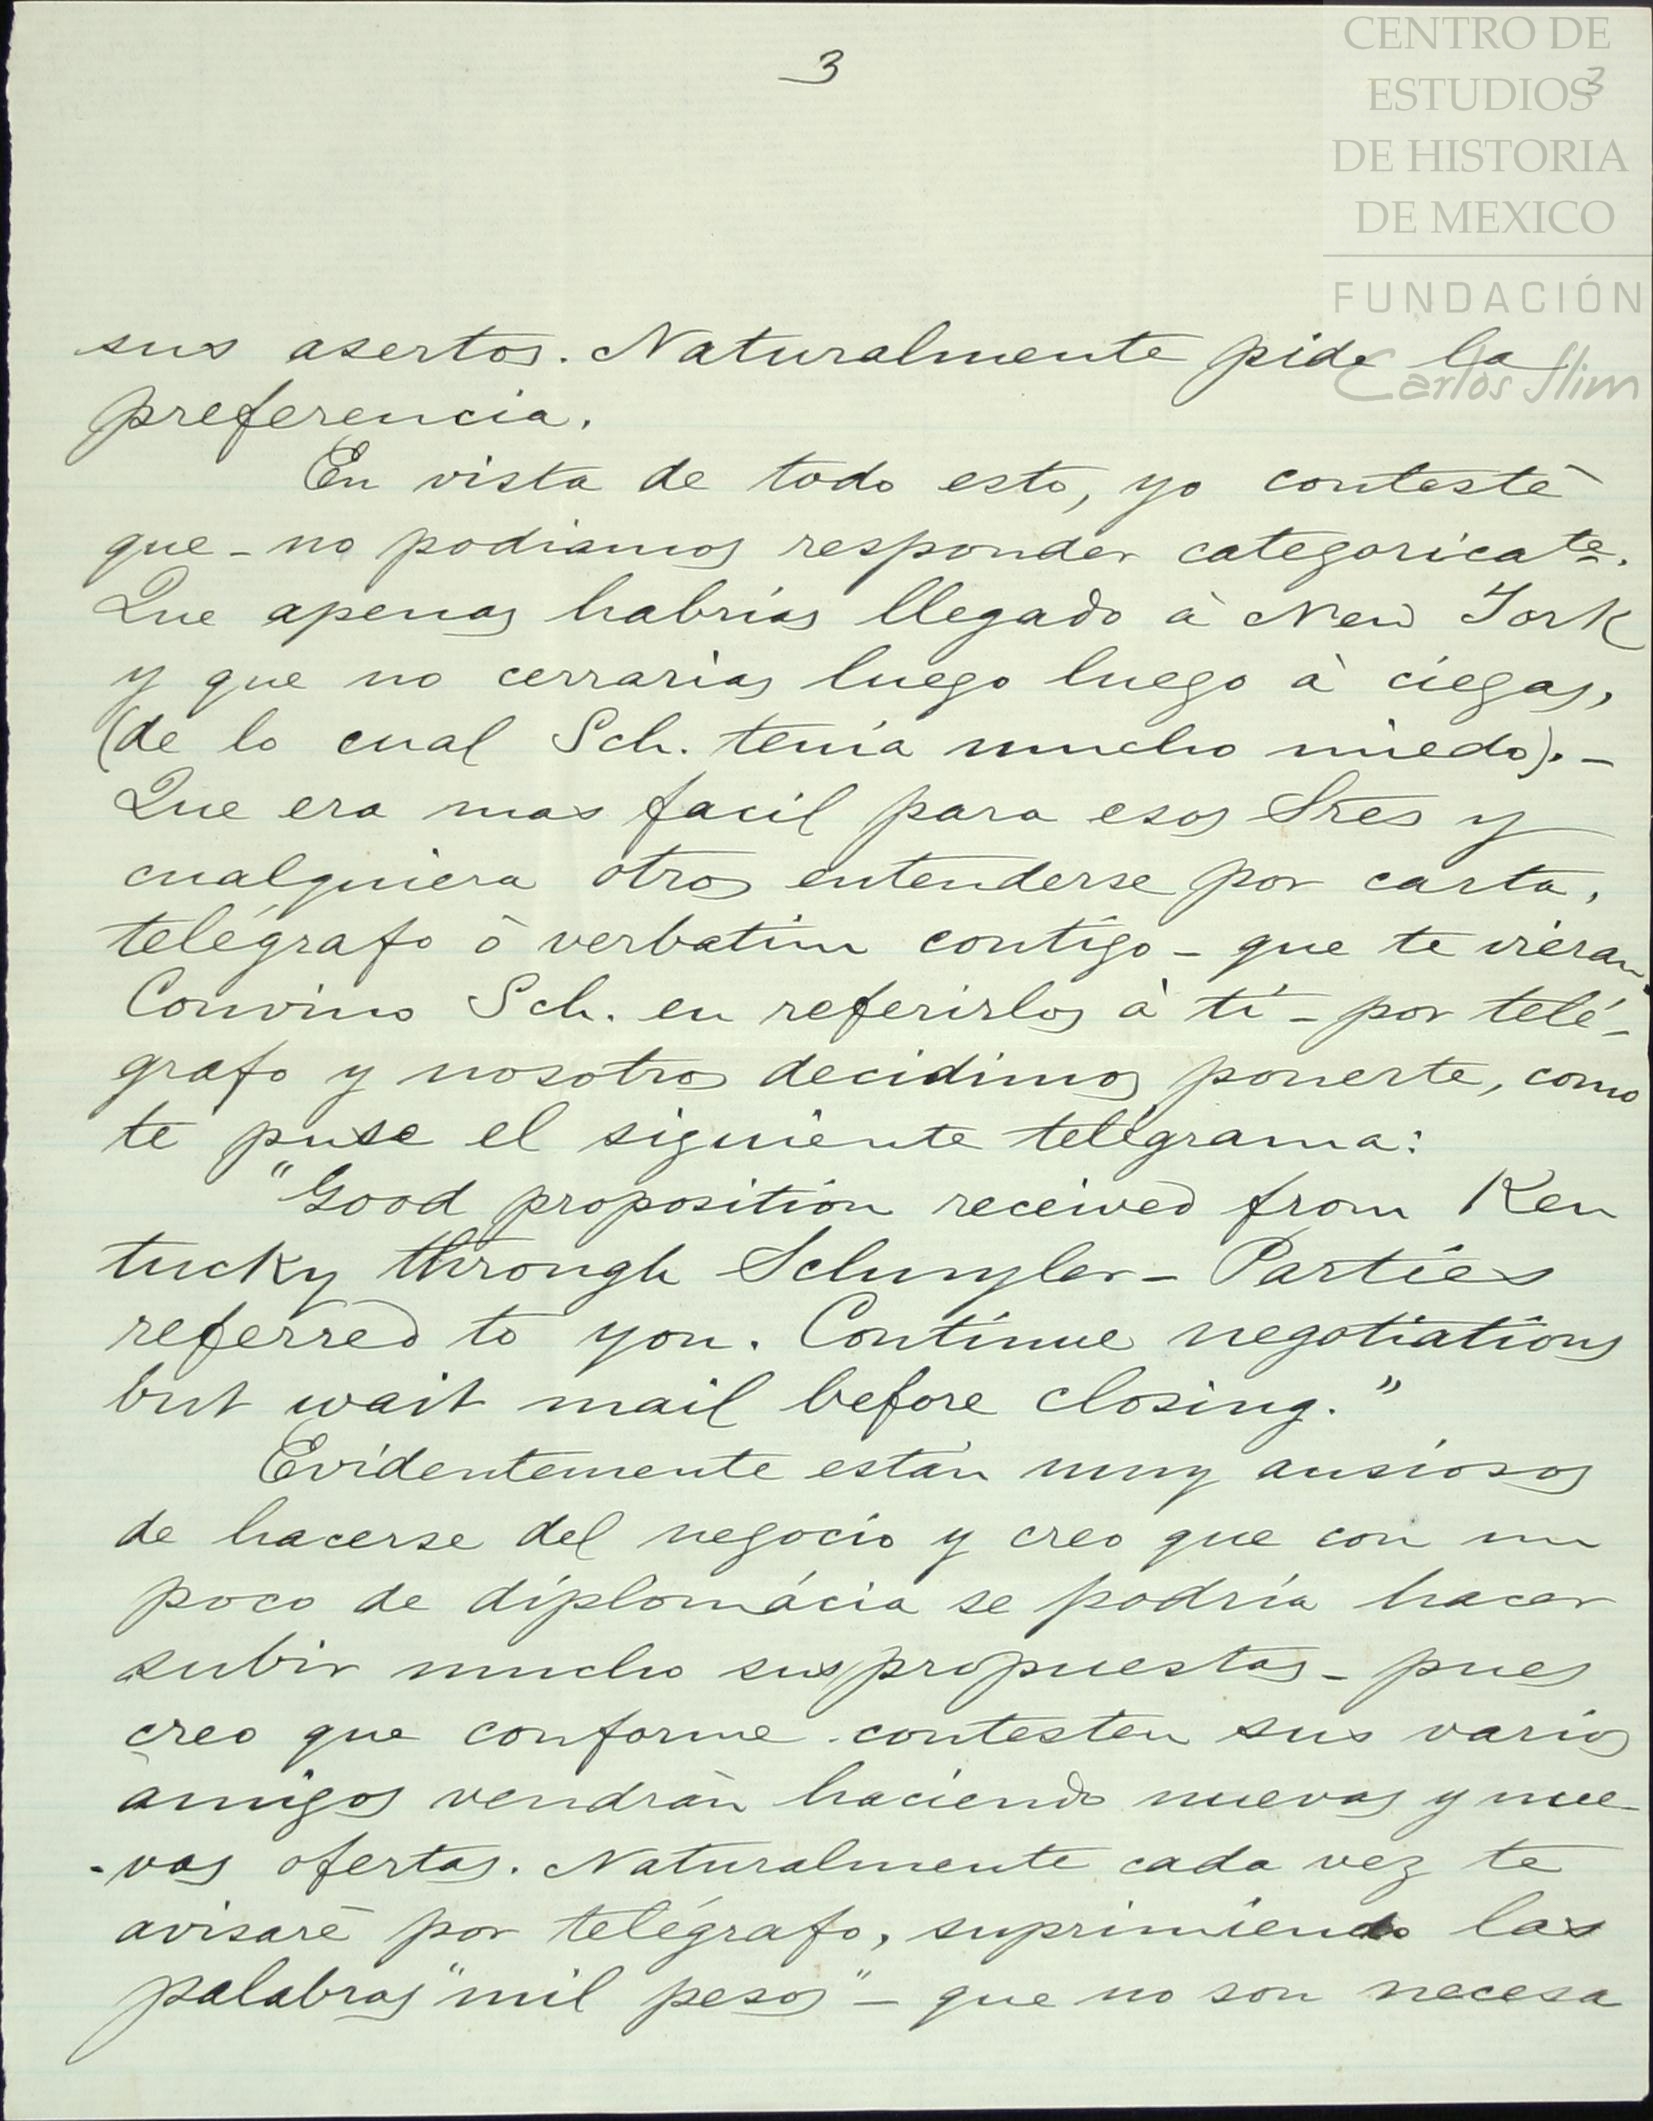 3
CENTRO DE
ESTUDIOS
3
DE HISTORIA
DE MEXICO
FUNDACIÓN
Carlos Slim
sus asertos. Naturalmente pide la
preferencia.
En vista de todo esto, yo contesté
que - no podiamos responder categoricate.
Que apenas habrías llegado à New York
y que no cerrarias luego luego à ciegas,
(de lo cual Sch. tenía mucho miedo). -
Que era mas facil para esos Sres y
cualquiera otros entenderse por carta,
telégrafo ó verbatim contigo - que te vieran.
Convino Sch. en referirlos à tí - por telé-
grafo y nosotros decidimos ponerte, como
te puse el siguiente telégrama:
"Good proposition received from Ken
tucky through Schuyler - Parties
referred to you. Continue negotiations
but wait mail before closing."
Evidentemente están muy ansiosos
de hacerse del negocio y creo que con un
poco de diplomácia se podría hacer
subir mucho sus propuestas - pues
creo que conforme contesten sus varios
amigos vendrán haciendo nuevas y nue-
-vas ofertas. Naturalmente cada vez te
avisaré por telégrafo, suprimiendo las
palabras "mil pesos" - que no son necesa